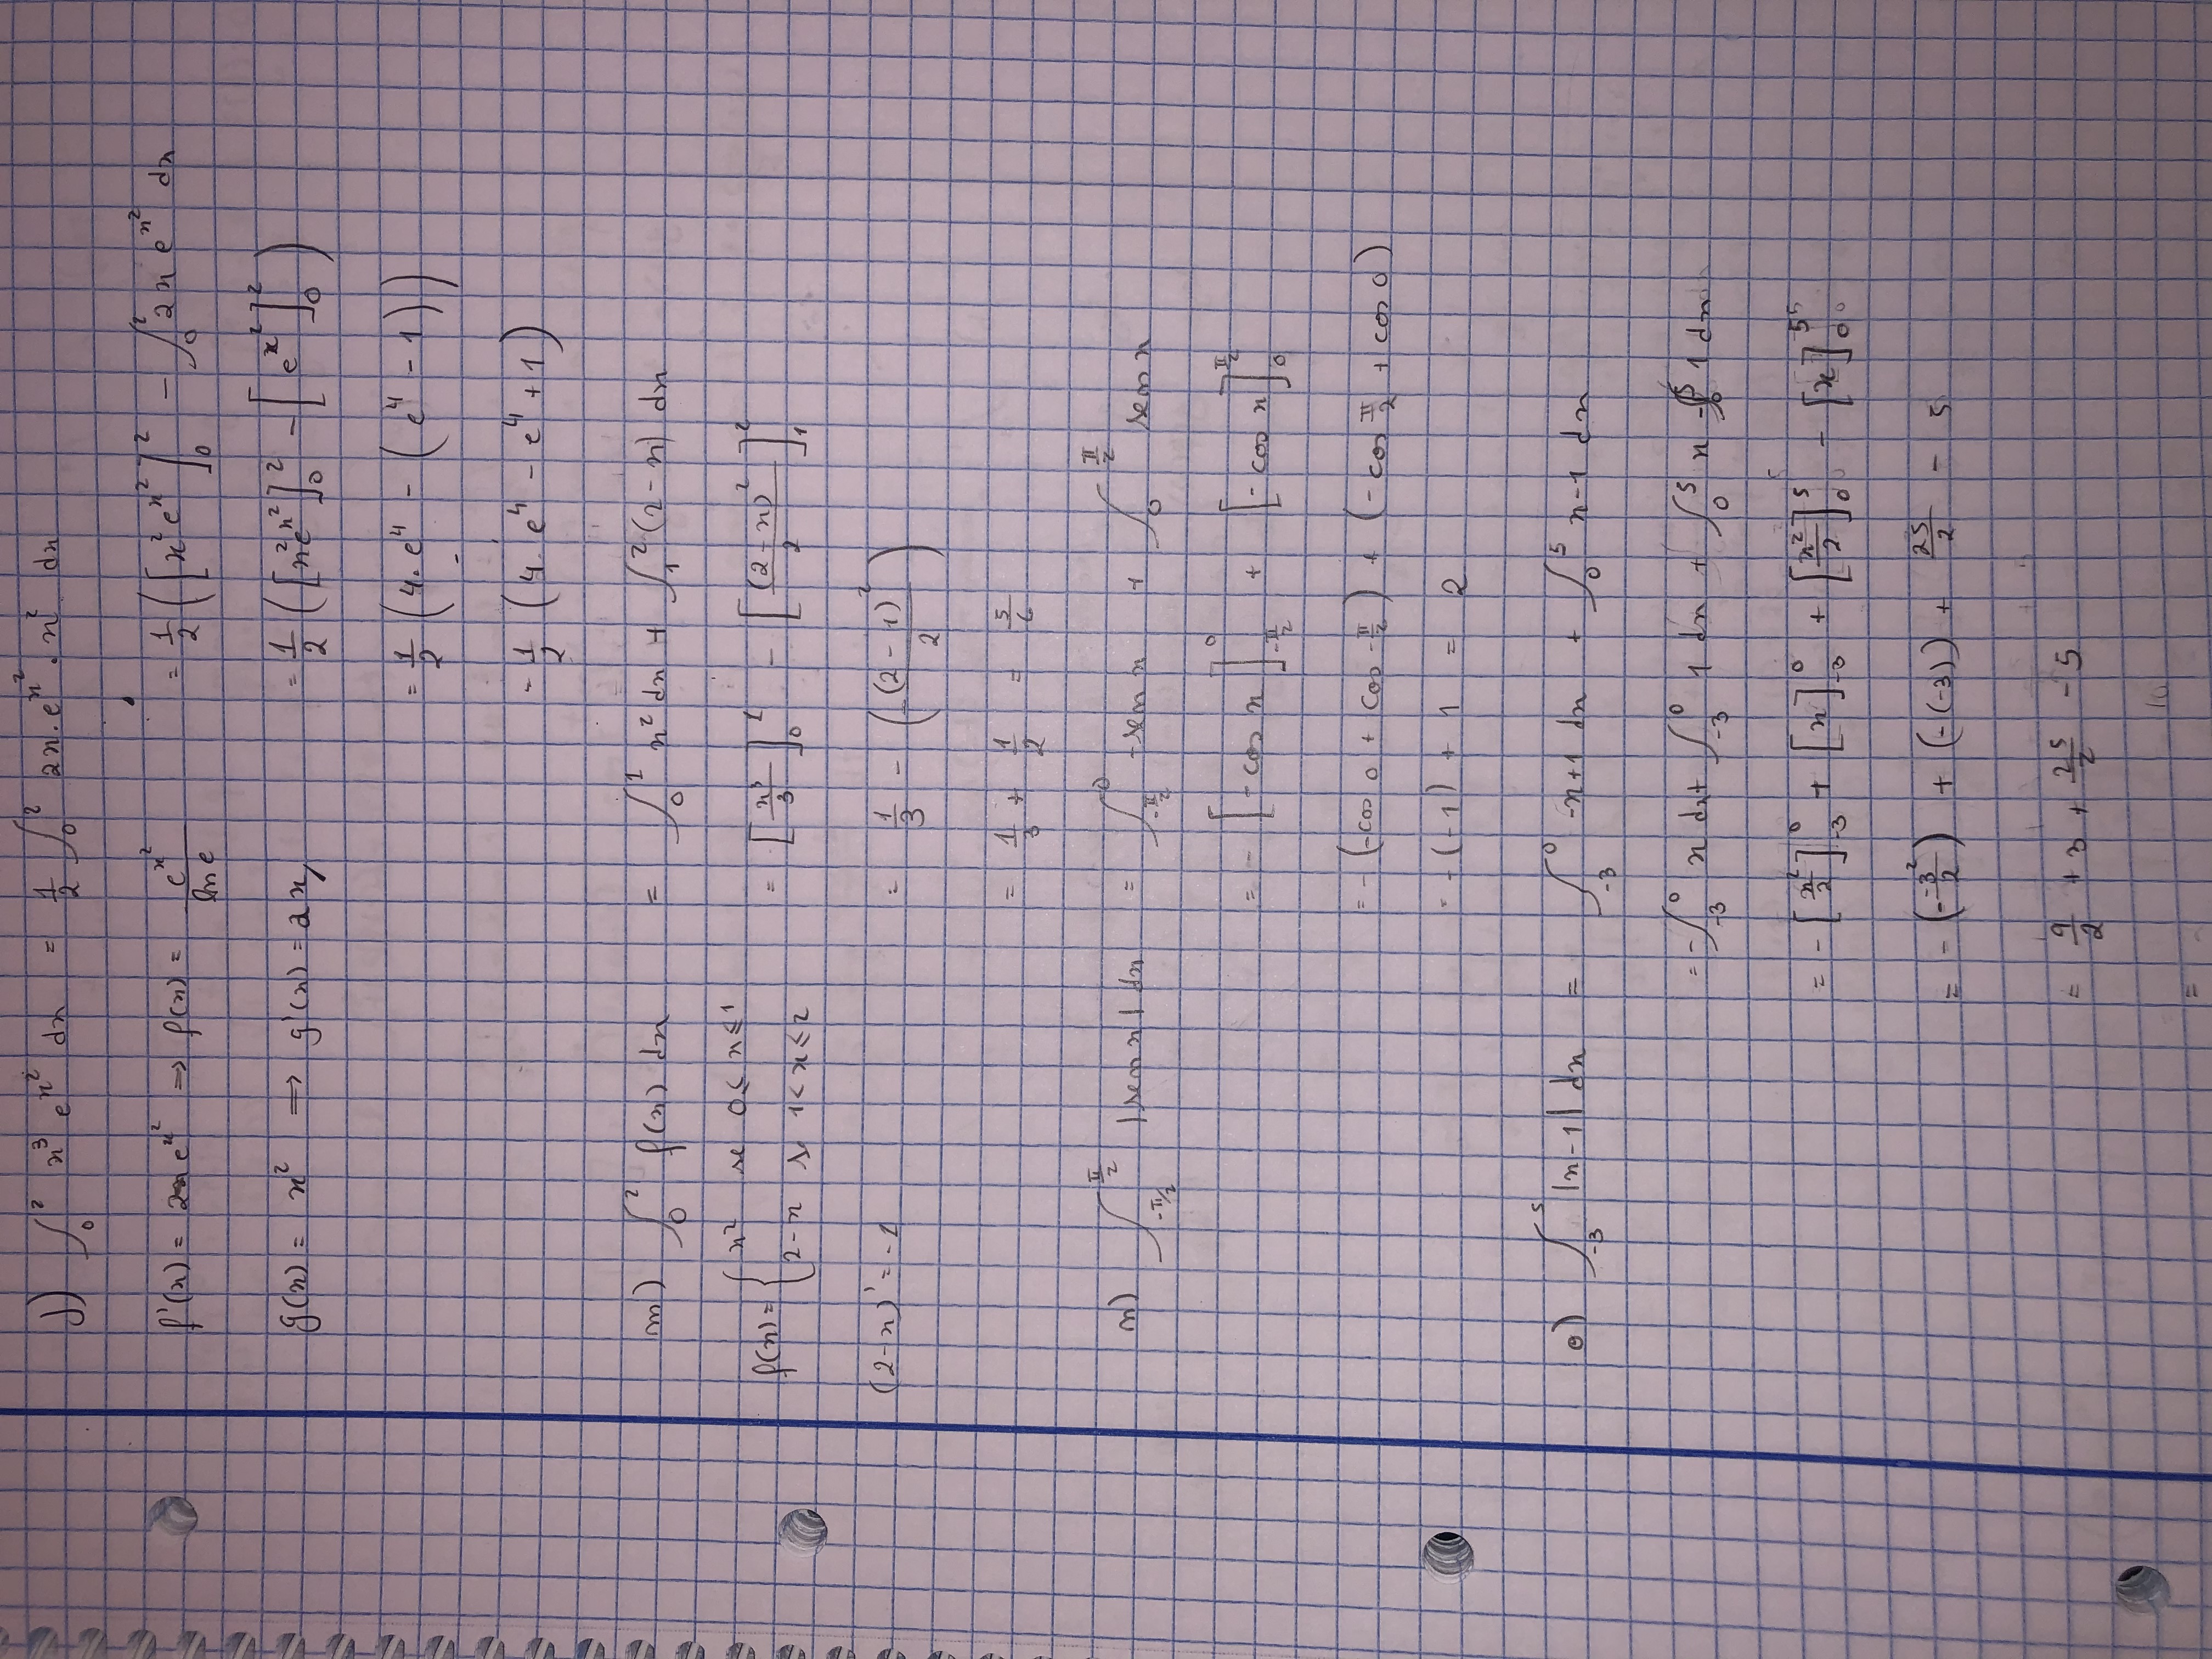 j) ∫₀² x³ e^(x²) dx = 1/2 ∫₀² 2x · e^(x²) · x² dx
f'(x) = 2x e^(x²) ⇒ f(x) = e^(x²)/ln e = 1/2 ([x² e^(x²)]₀² − ∫₀² 2x e^(x²) dx
g(x) = x² ⇒ g'(x) = 2x, = 1/2 ([x² e^(x²)]₀² − [e^(x²)]₀²)
= 1/2 (4 · e⁴ − (e⁴ − 1))
= 1/2 (4 · e⁴ − e⁴ + 1)
m) ∫₀² f(x) dx = ∫₀¹ x² dx + ∫₁² (2−x) dx
f(x) = { x² se 0 ≤ x ≤ 1
2−x se 1 < x ≤ 2 = [x³/3]₀¹ − [(2−x)²/2]₁²
(2−x)' = −1 = 1/3 − (−(2−1)²/2)
= 1/3 + 1/2 = 5/6
n) ∫_(−π/2)^(π/2) |sen x| dx = ∫_(−π/2)^0 −sen x + ∫₀^(π/2) sen x
= − [−cos x]_(−π/2)^0 + [−cos x]₀^(π/2)
= − (−cos 0 + cos −π/2) + (−cos π/2 + cos 0)
= − (−1) + 1 = 2
o) ∫₋₃⁵ |x−1| dx = ∫₋₃⁰ −x+1 dx + ∫₀⁵ x−1 dx
= −∫₋₃⁰ x dx + ∫₋₃⁰ 1 dx + ∫₀⁵ x −∫₀⁵ 1 dx
= − [x²/2]₋₃⁰ + [x]₋₃⁰ + [x²/2]₀⁵ − [x]₀⁵
= − (−−3²/2) + (−(−3)) + 25/2 − 5
= 9/2 + 3 + 25/2 − 5
=